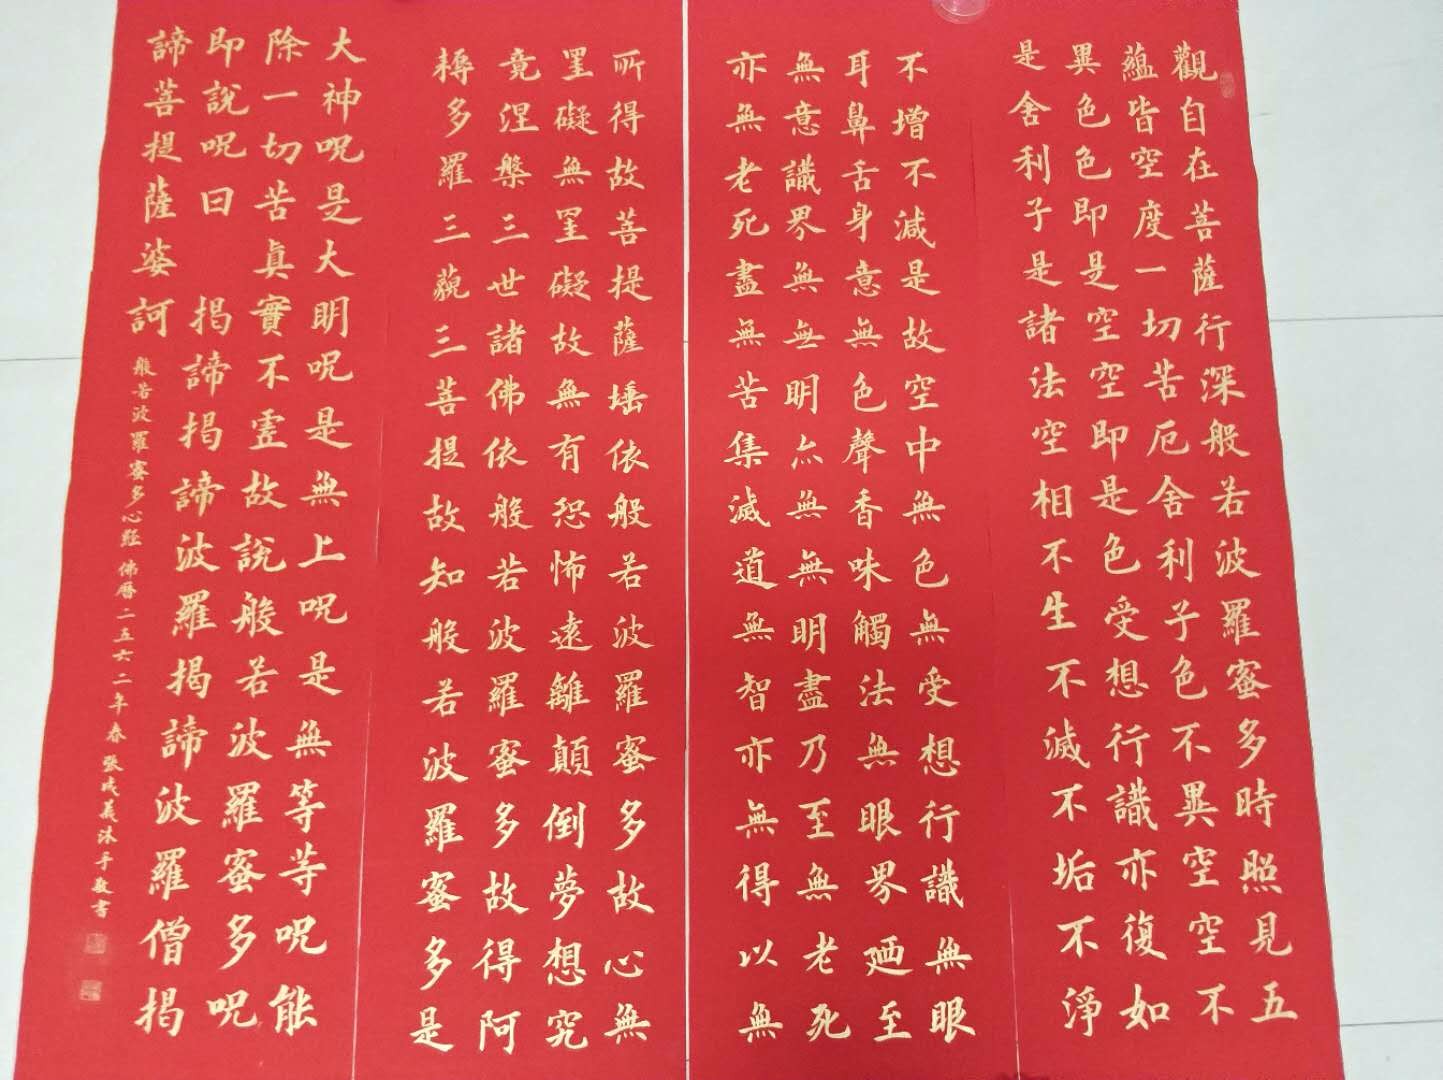 觀自在菩薩行深般若波羅蜜多時照見五
蘊皆空度一切苦厄舍利子色不異空空不
異色色即是空空即是色受想行識亦復如
是舍利子是諸法空相不生不滅不垢不淨
不增不減是故空中無色無受想行識無眼
耳鼻舌身意無色聲香味觸法無眼界廼至
無意識界無無明亦無無明盡乃至無老死
亦無老死盡無苦集滅道無智亦無得以無
所得故菩提薩埵依般若波羅蜜多故心無
罣礙無罣礙故無有恐怖遠離顛倒夢想究
竟涅槃三世諸佛依般若波羅蜜多故得阿
耨多羅三藐三菩提故知般若波羅蜜多是
大神呪是大明呪是無上呪是無等等呪能
除一切苦真實不虛故說般若波羅蜜多呪
即說呪曰 揭諦揭諦波羅揭諦波羅僧揭
諦菩提薩婆訶
般若波羅蜜多心經 佛曆二五六二年春 張成義沐手敬書